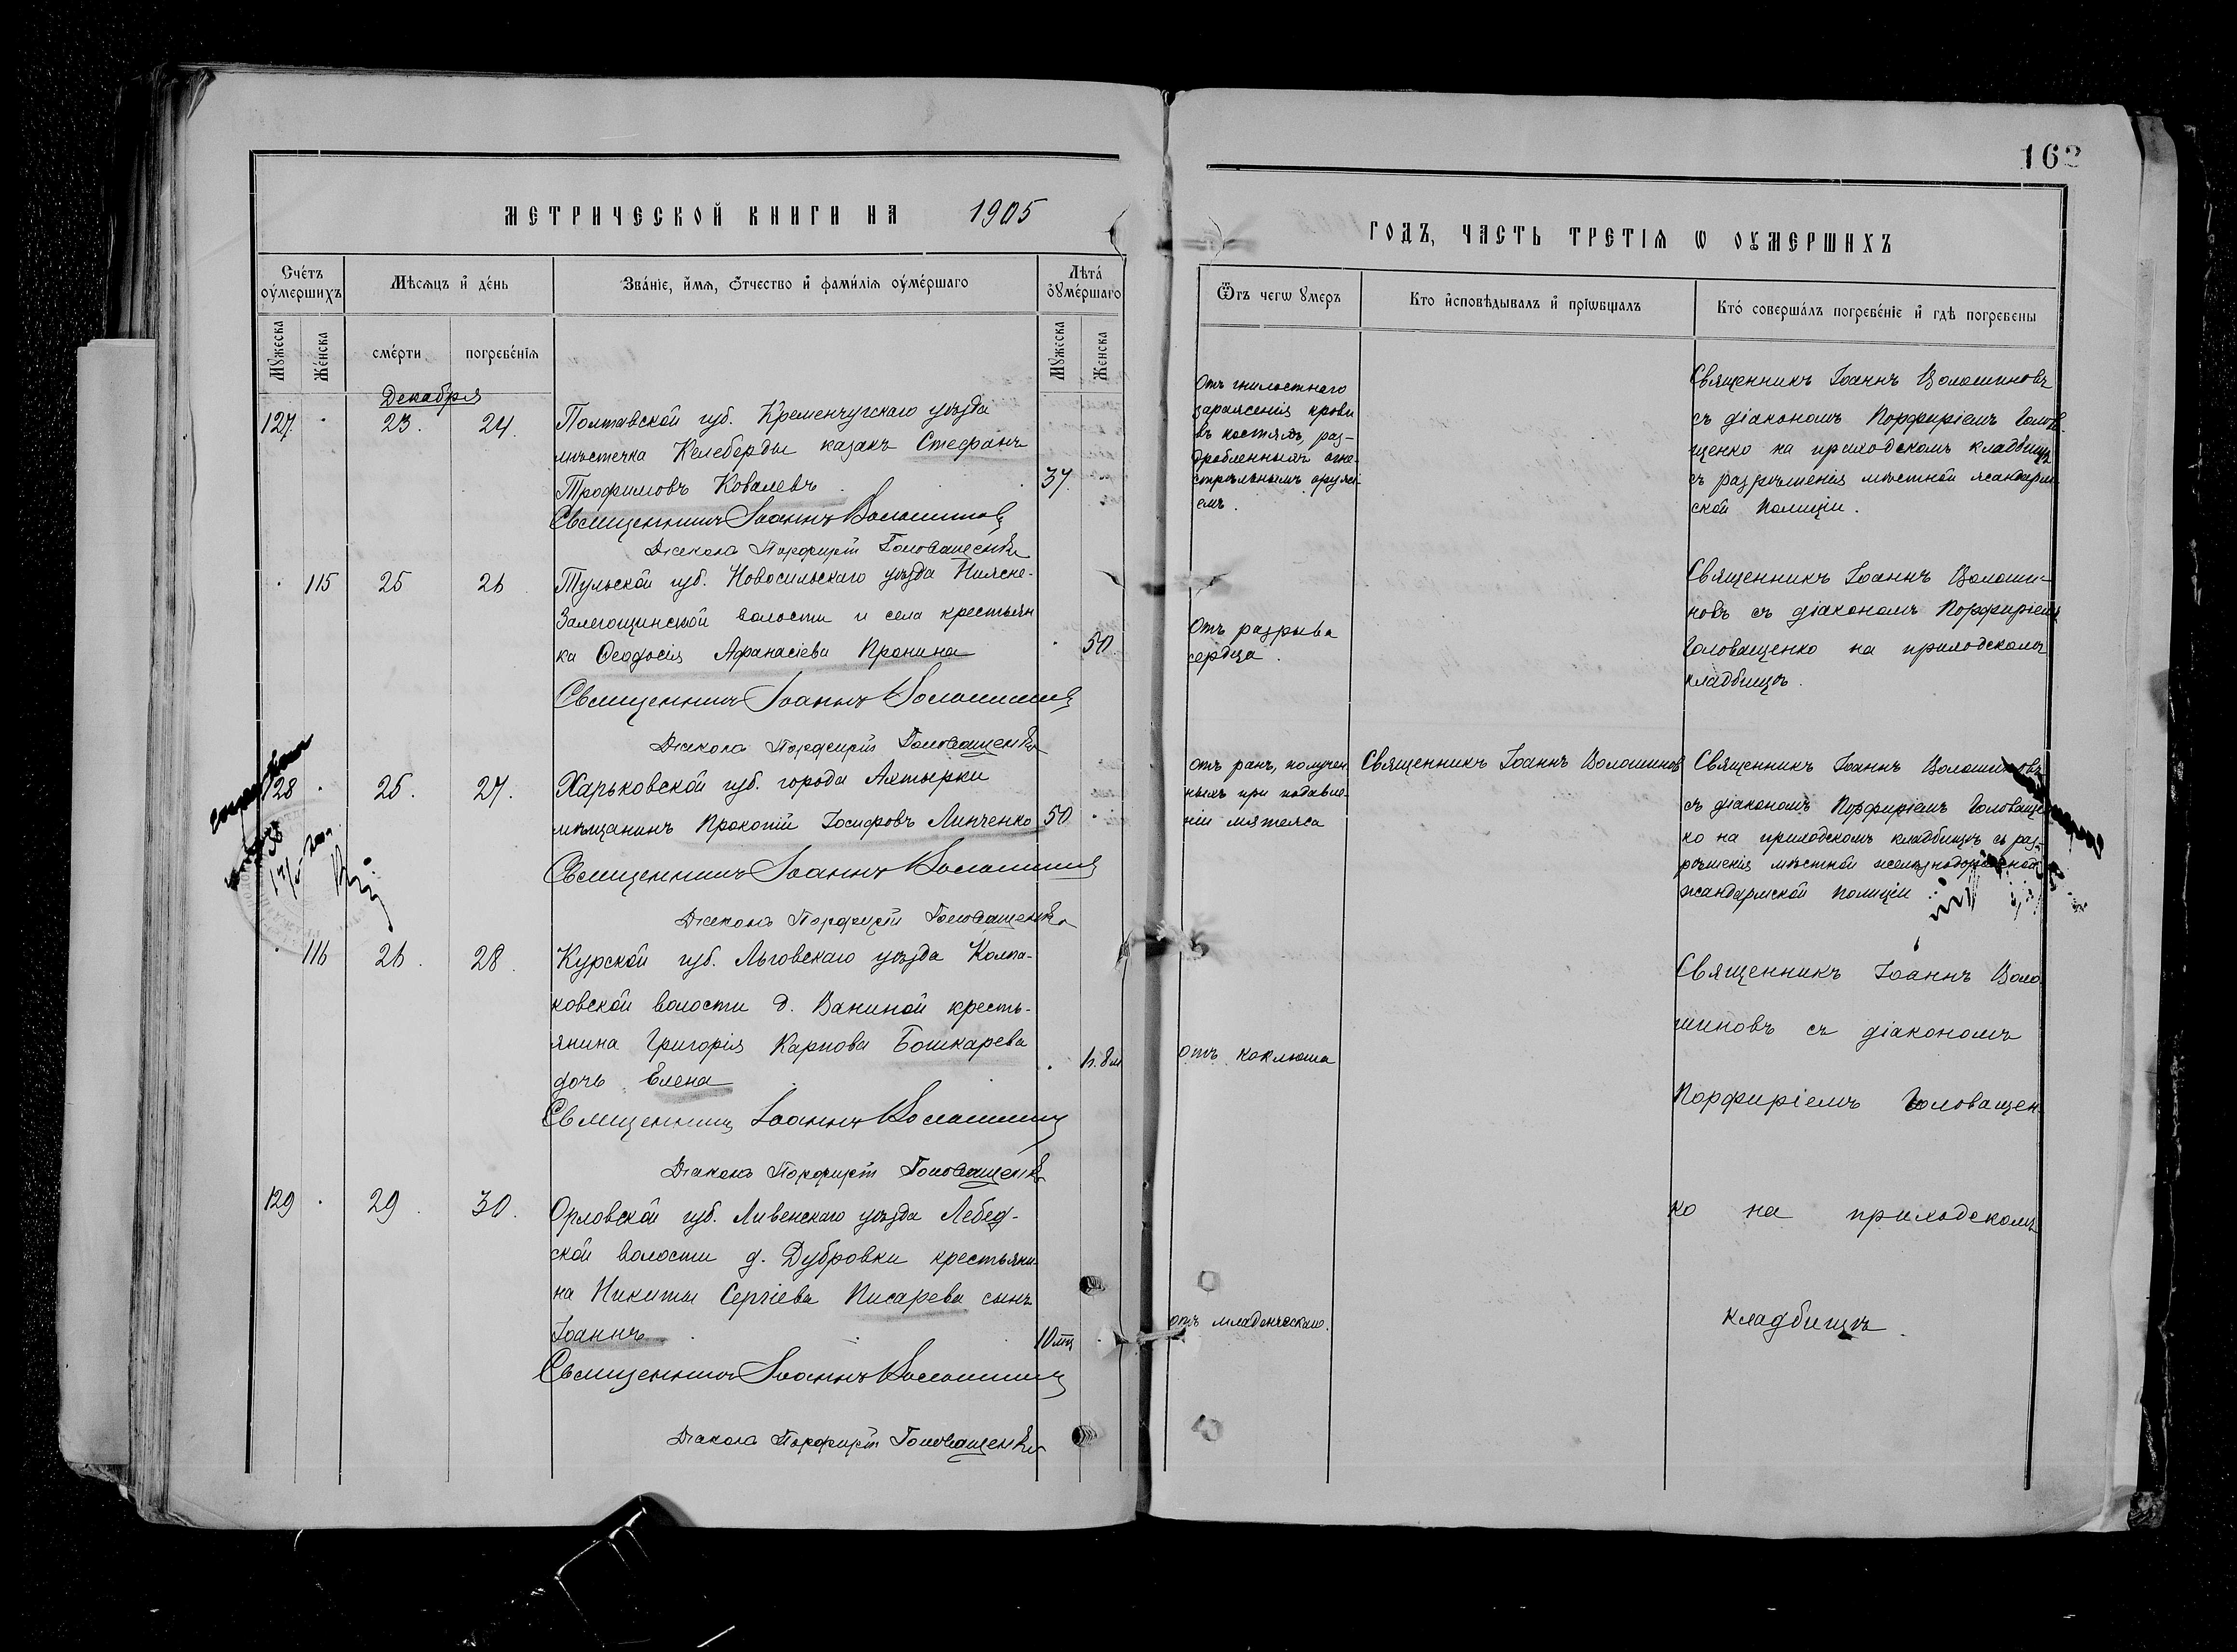 162
МЕТРИЧЕСКОЙ КНИГИ НА 1905
ГОДЪ, ЧАСТЬ ТРЕТІѦ Ѡ ОУМЕРШИХЪ
Счетъ оумершихъ
Мѣсѧцъ и день
Званіе, имѧ, отчество и фамиліѧ оумершаго
Лѣта оумершаго
Мужеска
Женска
смерти
погребеніѧ
Мужеска
Женска
Ѿ чегѡ умеръ
Кто исповѣдывалъ и пріѡбщалъ
Кто совершалъ погребеніе и гдѣ погребены
Декабря
127. 23. 24.
Полтавской губ. Кременчугскаго уѣзда
мѣстечка Келеберды казакъ Стефанъ
Трофимовъ Ковалевъ. 37
Священникъ Іоаннъ Волошиновъ
Діаконъ Порфирій Головащенко
Отъ гнилостнаго
зараженія крови
въ костяхъ, раз-
дробленныхъ огне-
стрѣльнымъ оружі-
емъ.
Священникъ Іоаннъ Волошиновъ
съ діакономъ Порфиріемъ Голова
щенко на приходскомъ кладбищѣ
съ разрѣшенія мѣстной жандарм
ской полиціи.
115 25 26
Тульской губ. Новосильскаго уѣзда Нижне-
Залегощинской волости и села крестьян
ка Ѳеодосія Афанасіева Пронина 50
Священникъ Іоаннъ Волошиновъ
Діаконъ Порфирій Головащенко
Отъ разрыва
сердца.
Священникъ Іоаннъ Волоши-
новъ съ діакономъ Порфиріемъ
Головащенко на приходскомъ
кладбищѣ.
128 25. 27.
Харьковской губ. города Ахтырки
мѣщанинъ Прокопій Іосифовъ Линченко 50
Священникъ Іоаннъ Волошиновъ
Діаконъ Порфирій Головащенко
отъ ранъ, получен
ныхъ при подавле-
ніи мятежа
Священникъ Іоаннъ Волошиновъ
Священникъ Іоаннъ Волошиновъ
съ діакономъ Порфиріемъ Головаще
ко на приходскомъ кладбищѣ съ раз-
рѣшенія мѣстной желѣзнодорожной
жандармской полиціи.
116 26. 28.
Курской губ. Льговскаго уѣзда Колпа-
ковской волости д. Ваниной кресть-
янина Григорія Карпова Бошкарева
дочь Елена
Священникъ Іоаннъ Волошиновъ
Діаконъ Порфирій Головащенко
отъ коклюша
Священникъ Іоаннъ Воло
шиновъ съ діакономъ
Порфиріемъ Головащен
ко на приходскомъ
кладбищѣ.
129 29. 30.
Орловской губ. Ливенскаго уѣзда Лебед-
ской волости д. Дубровки крестьяни-
на Никиты Сергіева Писарева сынъ
Іоаннъ. 10 мц
Священникъ Іоаннъ Волошиновъ
Діаконъ Порфирій Головащенко
отъ младенческаго.